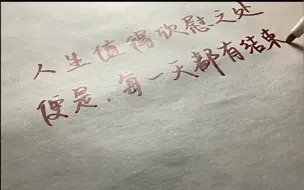 人生值得欣慰之处
便是，每一天都有结束